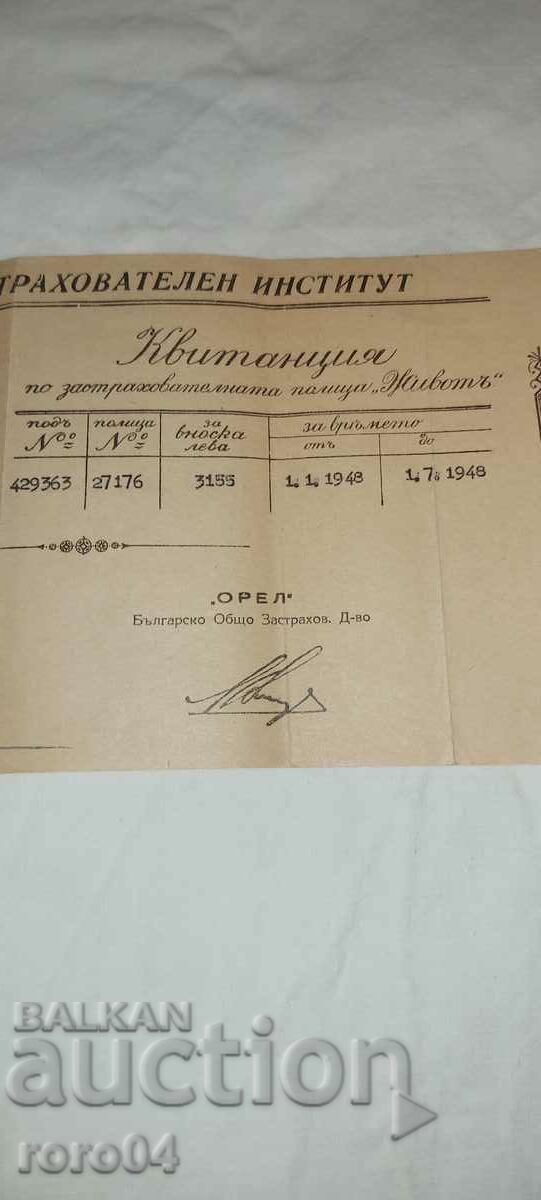 ТРАХОВАТЕЛЕН ИНСТИТУТ
Квитанция
по застрахователната полица „Животъ“
подъ №о̱ полица №о̱ за вноска лева за врѣмето отъ до
429363 27176 3155 1. 1. 1948 1. 7. 1948
„ОРЕЛ“
Българско Общо Застрахов. Д-во
BALKAN
auction
roro04